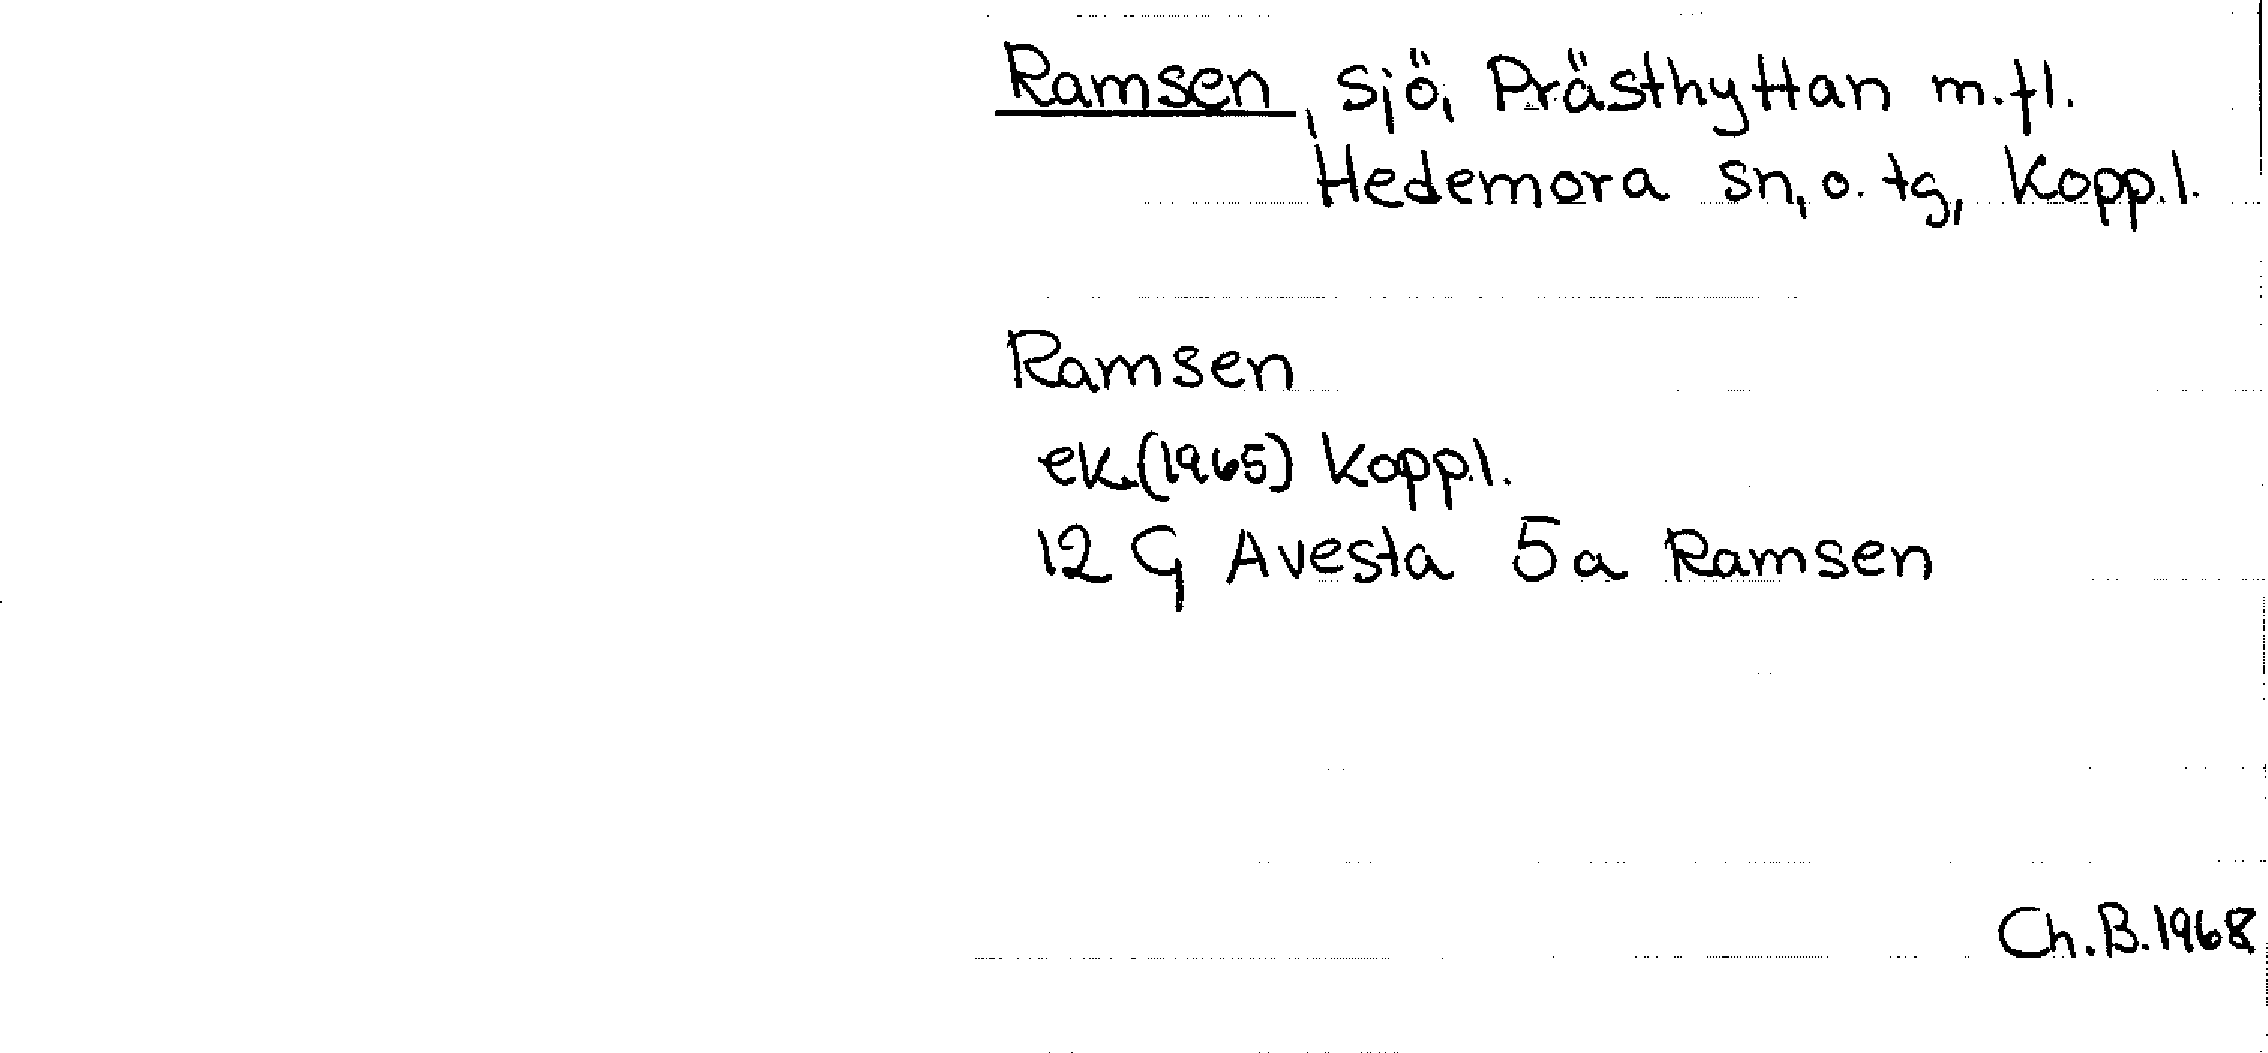 Ramsen, sjö, Prästhyttan m.fl.
Hedemora sn, o. tg, Kopp.l.
Ramsen
ek.(1965) Kopp.l.
12 G Avesta 5a Ramsen
Ch.B.1968